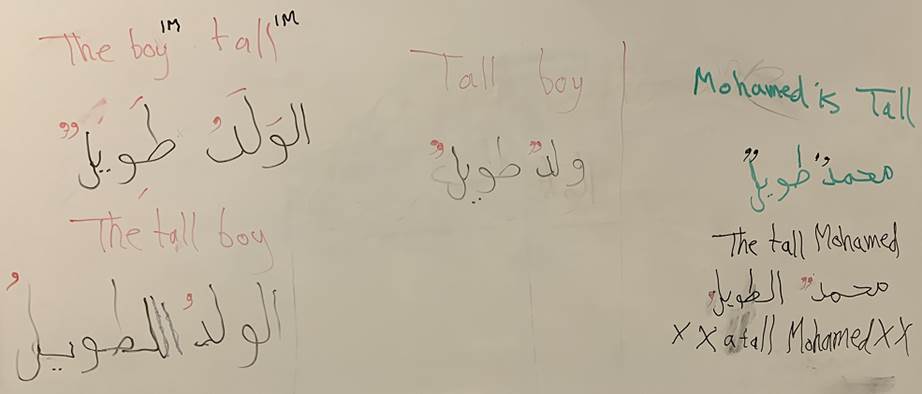 The boy 1M tall 1M
الوَلَدُ طَويلٌ
The tall boy
الولدُ الطويلُ
Tall boy
ولدٌ طويلٌ
Mohamed is Tall
محمدٌ طويلٌ
The tall Mohamed
محمدٌ الطويلُ
X X a tall Mohamed X X